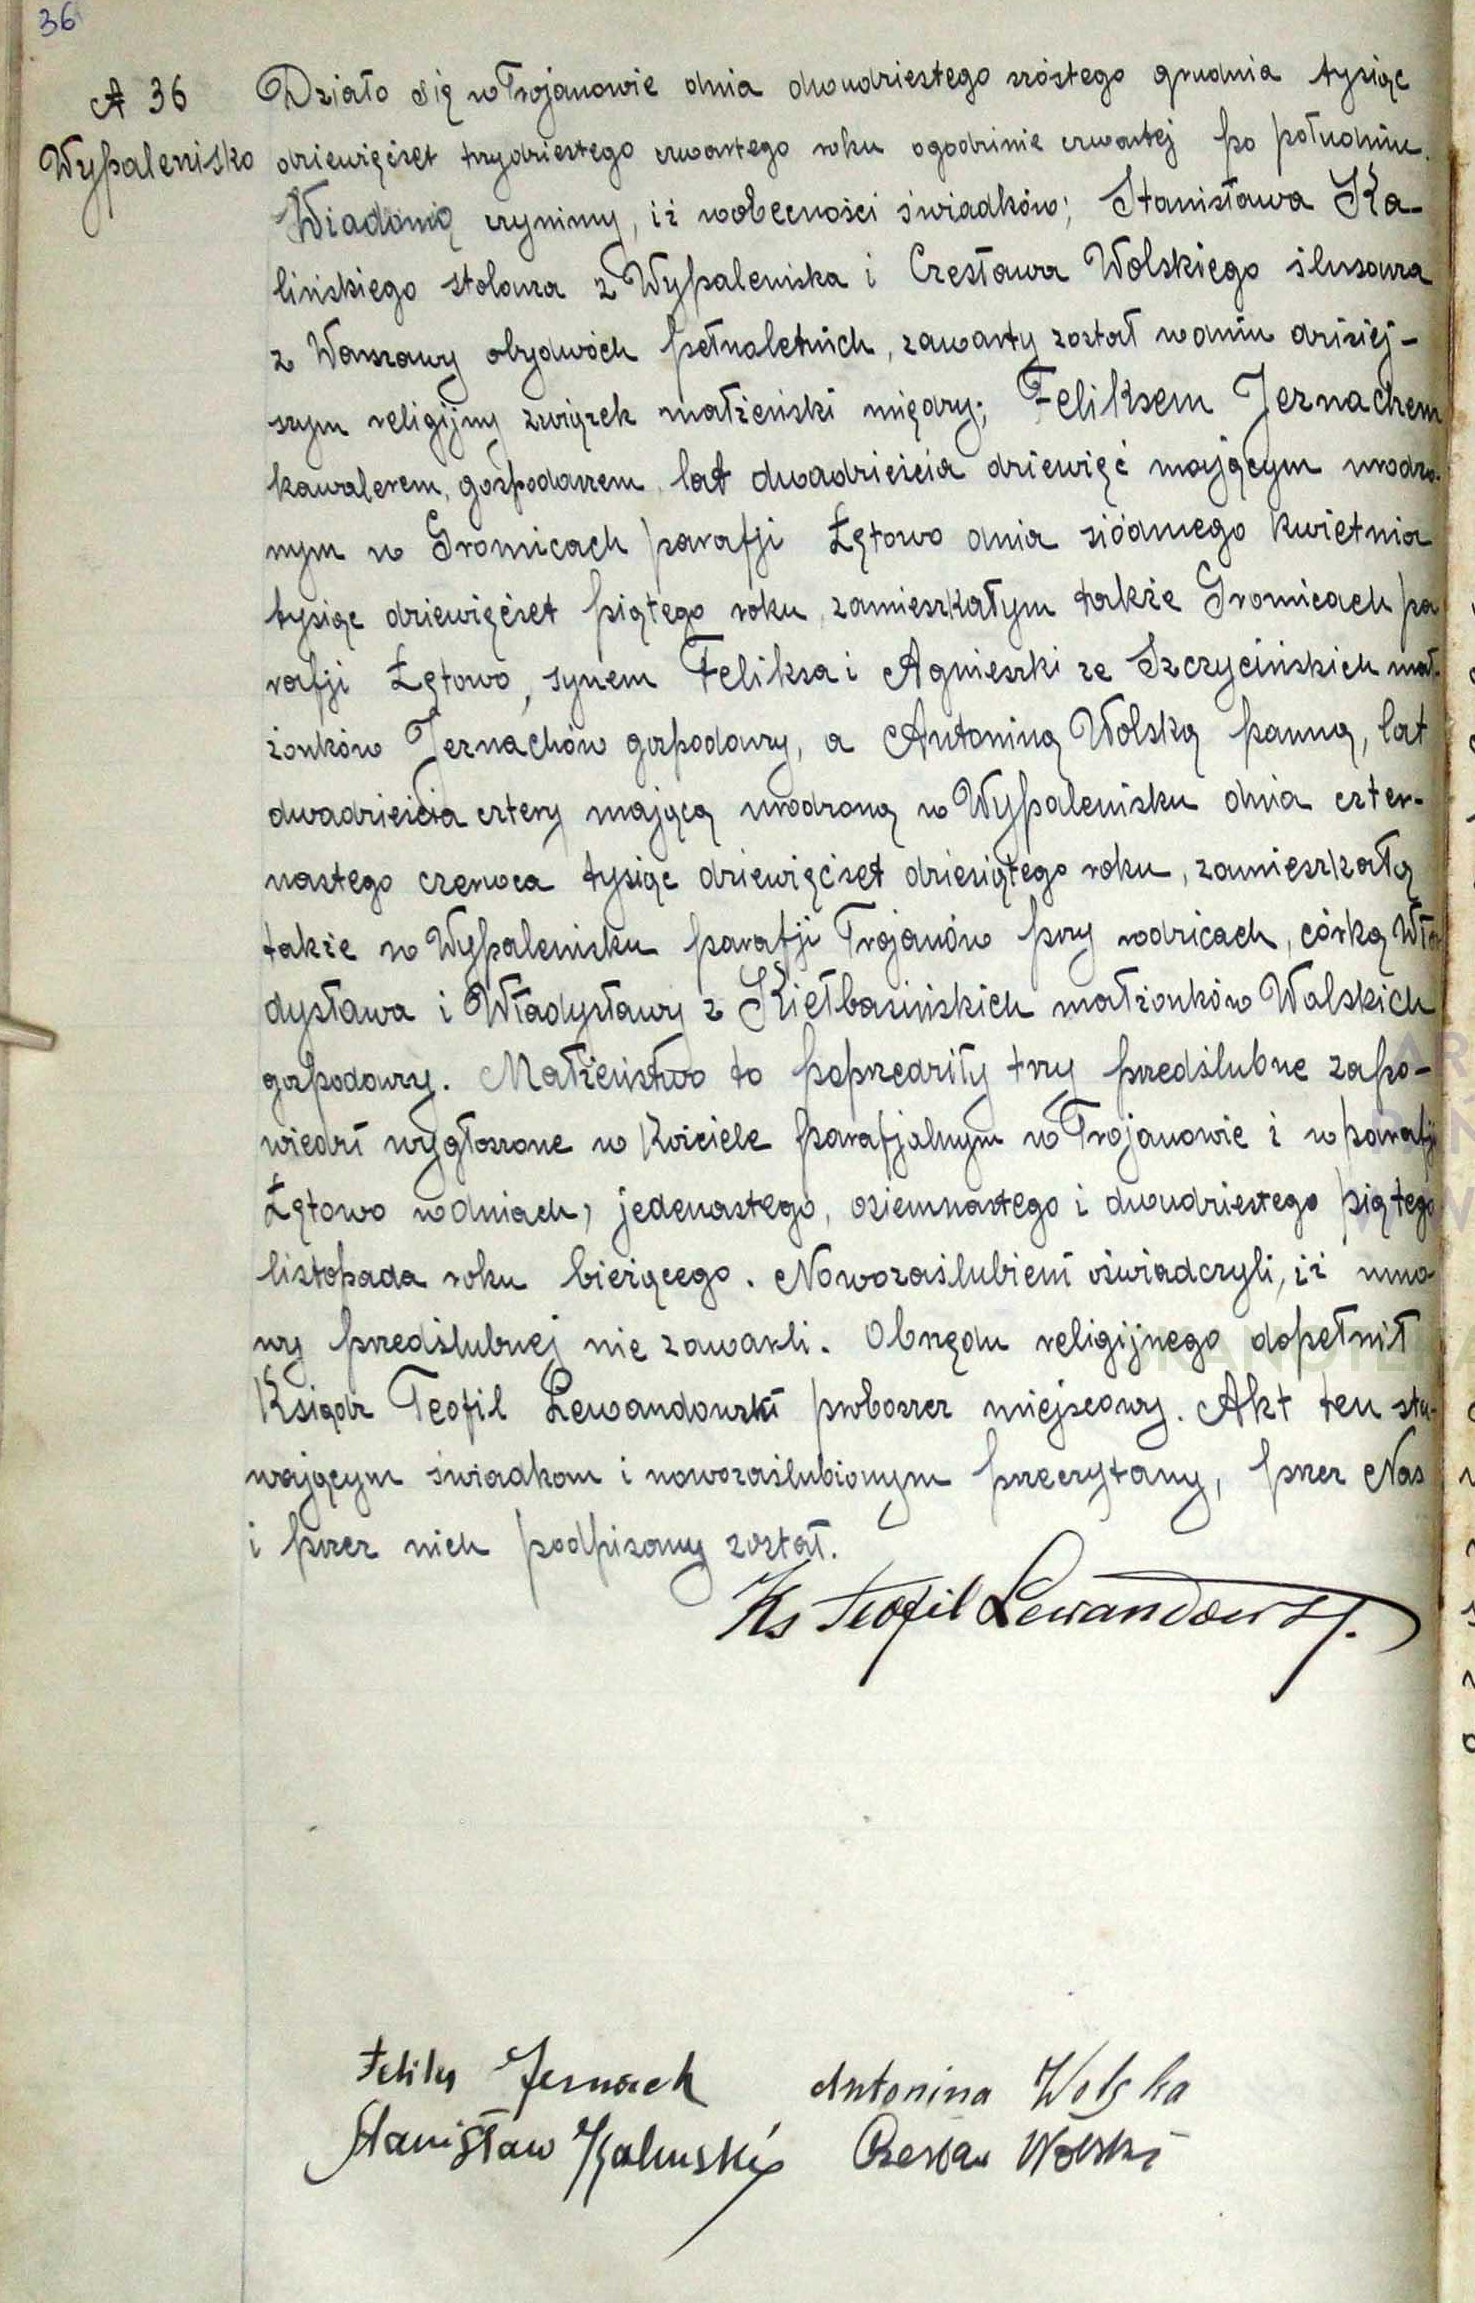 36
A 36
Wypalenisko
Działo się w Trojanowie dnia dwudziestego szóstego grudnia tysiąc
dziewięćset trzydziestego czwartego roku o godzinie czwartej po południu.
Wiadomo czynimy, iż w obecności świadków; Stanisława Ka-
lińskiego stolarza z Wypaleniska i Czesława Wolskiego ślusarza
z Warszawy obydwóch pełnoletnich, zawarty został w dniu dzisiej-
szym religijny związek małżeński między; Feliksem Jeznachem
kawalerem, gospodarzem, lat dwadzieścia dziewięć mającym urodzo-
nym w Gromicach parafji Łętowo dnia siódmego kwietnia
tysiąc dziewięćset piątego roku, zamieszkałym także Gromicach pa
rafji Łętowo, synem Feliksa i Agnieszki ze Szczycińskich mał-
żonków Jeznachów gospodarzy, a Antoniną Wolską panną, lat
dwadzieścia cztery mającą urodzoną w Wypalenisku dnia czter-
nastego czerwca tysiąc dziewięćset dziesiątego roku, zamieszkałą
także w Wypalenisku parafji Trojanów przy rodzicach, córką Wła
dysława i Władysławy z Kiełbasińskich małżonków Wolskich
gospodarzy. Małżeństwo to poprzedziły trzy przedślubne zapo-
wiedzi wygłoszone w Kościele parafjalnym w Trojanowie i w parafji
Łętowo w dniach; jedenastego, osiemnastego i dwudziestego piątego
listopada roku bieżącego. Nowozaślubieni oświadczyli, iż umo-
wy przedślubnej nie zawarli. Obrzędu religijnego dopełnił
Ksiądz Teofil Lewandowski proboszcz miejscowy. Akt ten sta-
wającym świadkom i nowozaślubionym przeczytany, przez Nas
i przez nich podpisany został.
Ks Teofil Lewandowski.
Feliks Jeznach Antonina Wolska
Stanisław Kaliński Czesław Wolski